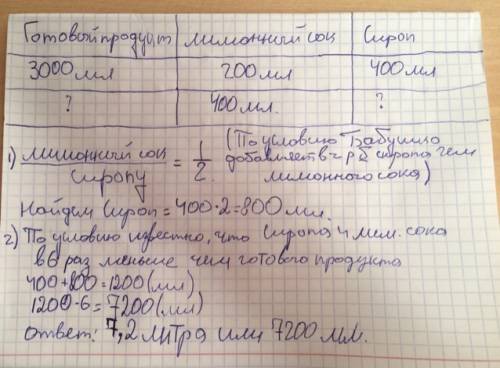 Готовый продукт лимонный сок Сироп
3000 мл 200 мл 400 мл
? 400 мл. ?
1) лимонный сок / сиропу = 1/2 (По условию Бабушка
добавляет в 2 р сиропа чем
лимонного сока)
Найдем Сироп = 400·2=800 мл.
2) По условию известно, что Сиропа и лим. сока
в 6 раз меньше чем готового продукта
400+800=1200 (мл)
1200·6=7200 (мл)
ответ: 7,2 литра или 7200 мл.